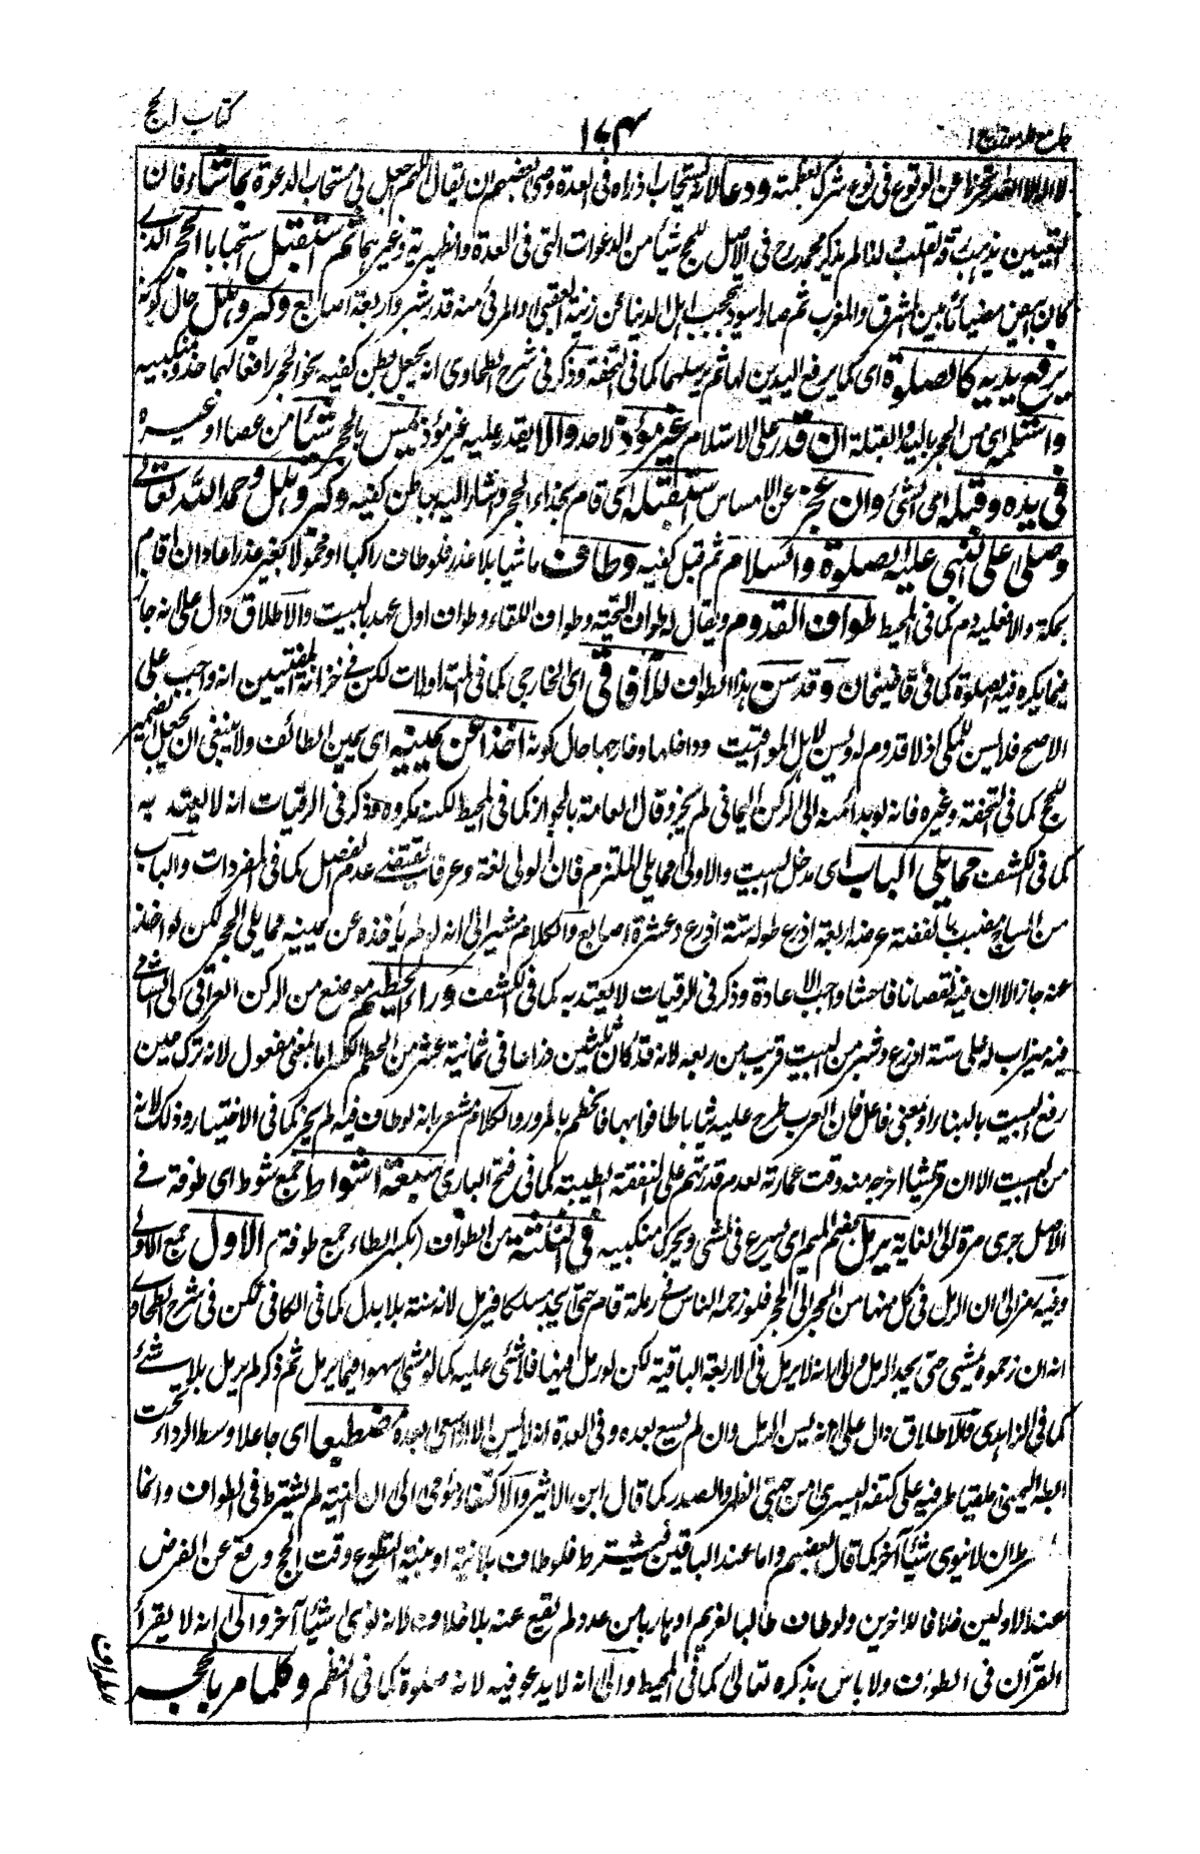 كتاب الحج
١٧٣
جامع الرموز ج ١
لا اله الا الله تحرزا عن الوقوع فى نوع شرك لعظمته ودعا لانه يستجاب اذا راه فى العدة وصى بعضهم ان يقال اللهم اجعلنى مستجاب الدعوة بما شاء فان
التعيين يذهب برقة القلب لذا لم يذكر محمد رح فى الاصل للحج شيئا من الدعوات التى فى العدة والظهيرية وغيرهما ثم استقبل استحبابا الحجر الذى
كان ابيض مضيئا ما بين المشرق والمغرب ثم صار اسود لتحجب اهل الدنيا عن زينة العقبى والمرئى منه قدر شبر واربعة اصابع وكبر وهلل حال كونه
يرفع يديه كالصلوة اى كما يرفع اليدين لها ثم يرسلهما كما فى التحفة وذكر فى شرح الطحاوى انه يجعل بطن كفيه نحو الحجر رافعا لهما حذو منكبيه
واستلمه اى مس الحجر باليد او القبلة ان قدر على الاستلام غير مؤذ لاحد والا يقدر عليه غير مؤذ يمس بالحجر شيئا من عصا او غيره
فى يده وقبله اى الشئ وان عجز عن الامساس استقبله اى قام بحذاء الحجر واشار اليه بباطن كفيه وكبر وهلل وحمد الله تعالى
وصلى على النبى عليه الصلوة والسلام ثم قبل كفيه وطاف ماشيا بلا عذر فلو طاف راكبا او محمولا بغير عذر اعاد ان اقام
بمكة والا فعليه دم كما فى المحيط طواف القدوم ويقال له طواف التحية وطواف اللقاء وطواف اول عهد بالبيت والاطلاق دال على انه جائز
فيما يكره فيه الصلوة كما فى قاضيخان وقد سن هذا الطواف للآفاقى اى الخارجى كما فى المتداولات لكن فى خزانة المفتيين انه واجب على
الاصح فلا يسن للمكى اذ لا قدوم له ويسن لاهل المواقيت وداخلها وخارجها حال كونه اخذا عن يمينه اى يمين الطائف ولا ينبغى ان يجعل الضمير
للحج كما فى التحفة وغيره فانه لو بدا منه الى الركن اليمانى لم يجز وقال العامة بالجواز كما فى المحيط لكنه مكروه وذكر فى الرقيات انه لا يعتد به
كما فى الكشف مما يلى الباب اى مدخل البيت والاولى مما يلى الملتزم فان الولى لغة وعرفا يقتضى عدم الفصل كما فى المفردات والباب
من الساج مضبب بالفضة عرضه اربعة اذرع طوله ستة اذرع وعشرة اصابع والكلام مشير الى انه لو لم يأخذه عن يمينه مما يلى الحجر لكن لو اخذ
عنه جاز الا ان فيه نقصانا فاحشا واجب الاعادة وذكر فى الرقيات لا يعتد به كما فى الكشف وراء الحطيم موضع من الركن العراقى الى الشامى
فيه ميزاب له على ستة اذرع وشبر من البيت قريب من ربعه لانه قد كان ثلثين ذراعا فى ثمانية عشر من الحطم الكسر اما بمعنى مفعول لانه ترك حين
رفع البيت بالبناء او بمعنى فاعل فان العرب طرح عليه ثيابا طافوا بها فانحطم بالمرور والكلام مشعر بانه لو طاف فيه لم يجز كما فى الاختيار وذلك لانه
من البيت الا ان قريشا اخرجه منه وقت عمارته لعدم قدرتهم على النفقة الطيبة كما فى فتح البارى سبعة اشواط جمع شوط اى طوفة فى
الاصل جرى مرة الى الغاية يرمل بضم الميم اى يسرع فى المشى ويحرك منكبيه فى الثلثة من الطواف (بكسر الطاء جمع طوفة) الاول جمع الاولى
وفيه رمز الى ان الرمل فى كل منها من الحجر الى الحجر فلو زحمه الناس فى رملة قام حتى يجد مسلكا فيرمل لانه سنة بلا بدل كما فى الكافى لكن فى شرح الطحاوى
انه ان زحموه يمشى حتى يجد الرمل والى انه لا يرمل فى الاربعة الباقية لكن لو رمل فيها فلا شئ عليه كما لو مشى سهوا فيما يرمل ثم ذكر لم يرمل بلا شئ
كما فى الزاهدى والاطلاق دال على انه يسن الرمل وان لم يسع بعده وفى العدة انه لا يسن الا اذا سعى بعده مضطبعا اى جاعلا وسط الرداء تحت
ابطه اليمنى ملقيا طرفيه على كتفه اليسرى من جهتى الظهر والصدر كما قال ابن الاثير والاكتفاء مومى الى ان النية لم يشترط فى الطواف وانما
شرط ان لا ينوى شيئا آخر كما قال بعضهم واما عند الباقين فيشترط فلو طاف بلا نية او بنية التطوع وقت الحج وقع عن الفرض
عند الاولين خلافا للاخرين ولو طاف طالبا لغريم او هاربا من عدو لم يقع عنه بلا خلاف لانه نوى شيئا آخر والى انه لا يقرأ
القرآن فى الطواف ولا باس بذكره تعالى كما فى المحيط والى انه لا يدعو فيه لانه صلوة كما فى النظم وكلما مر بالحجر
الطواف